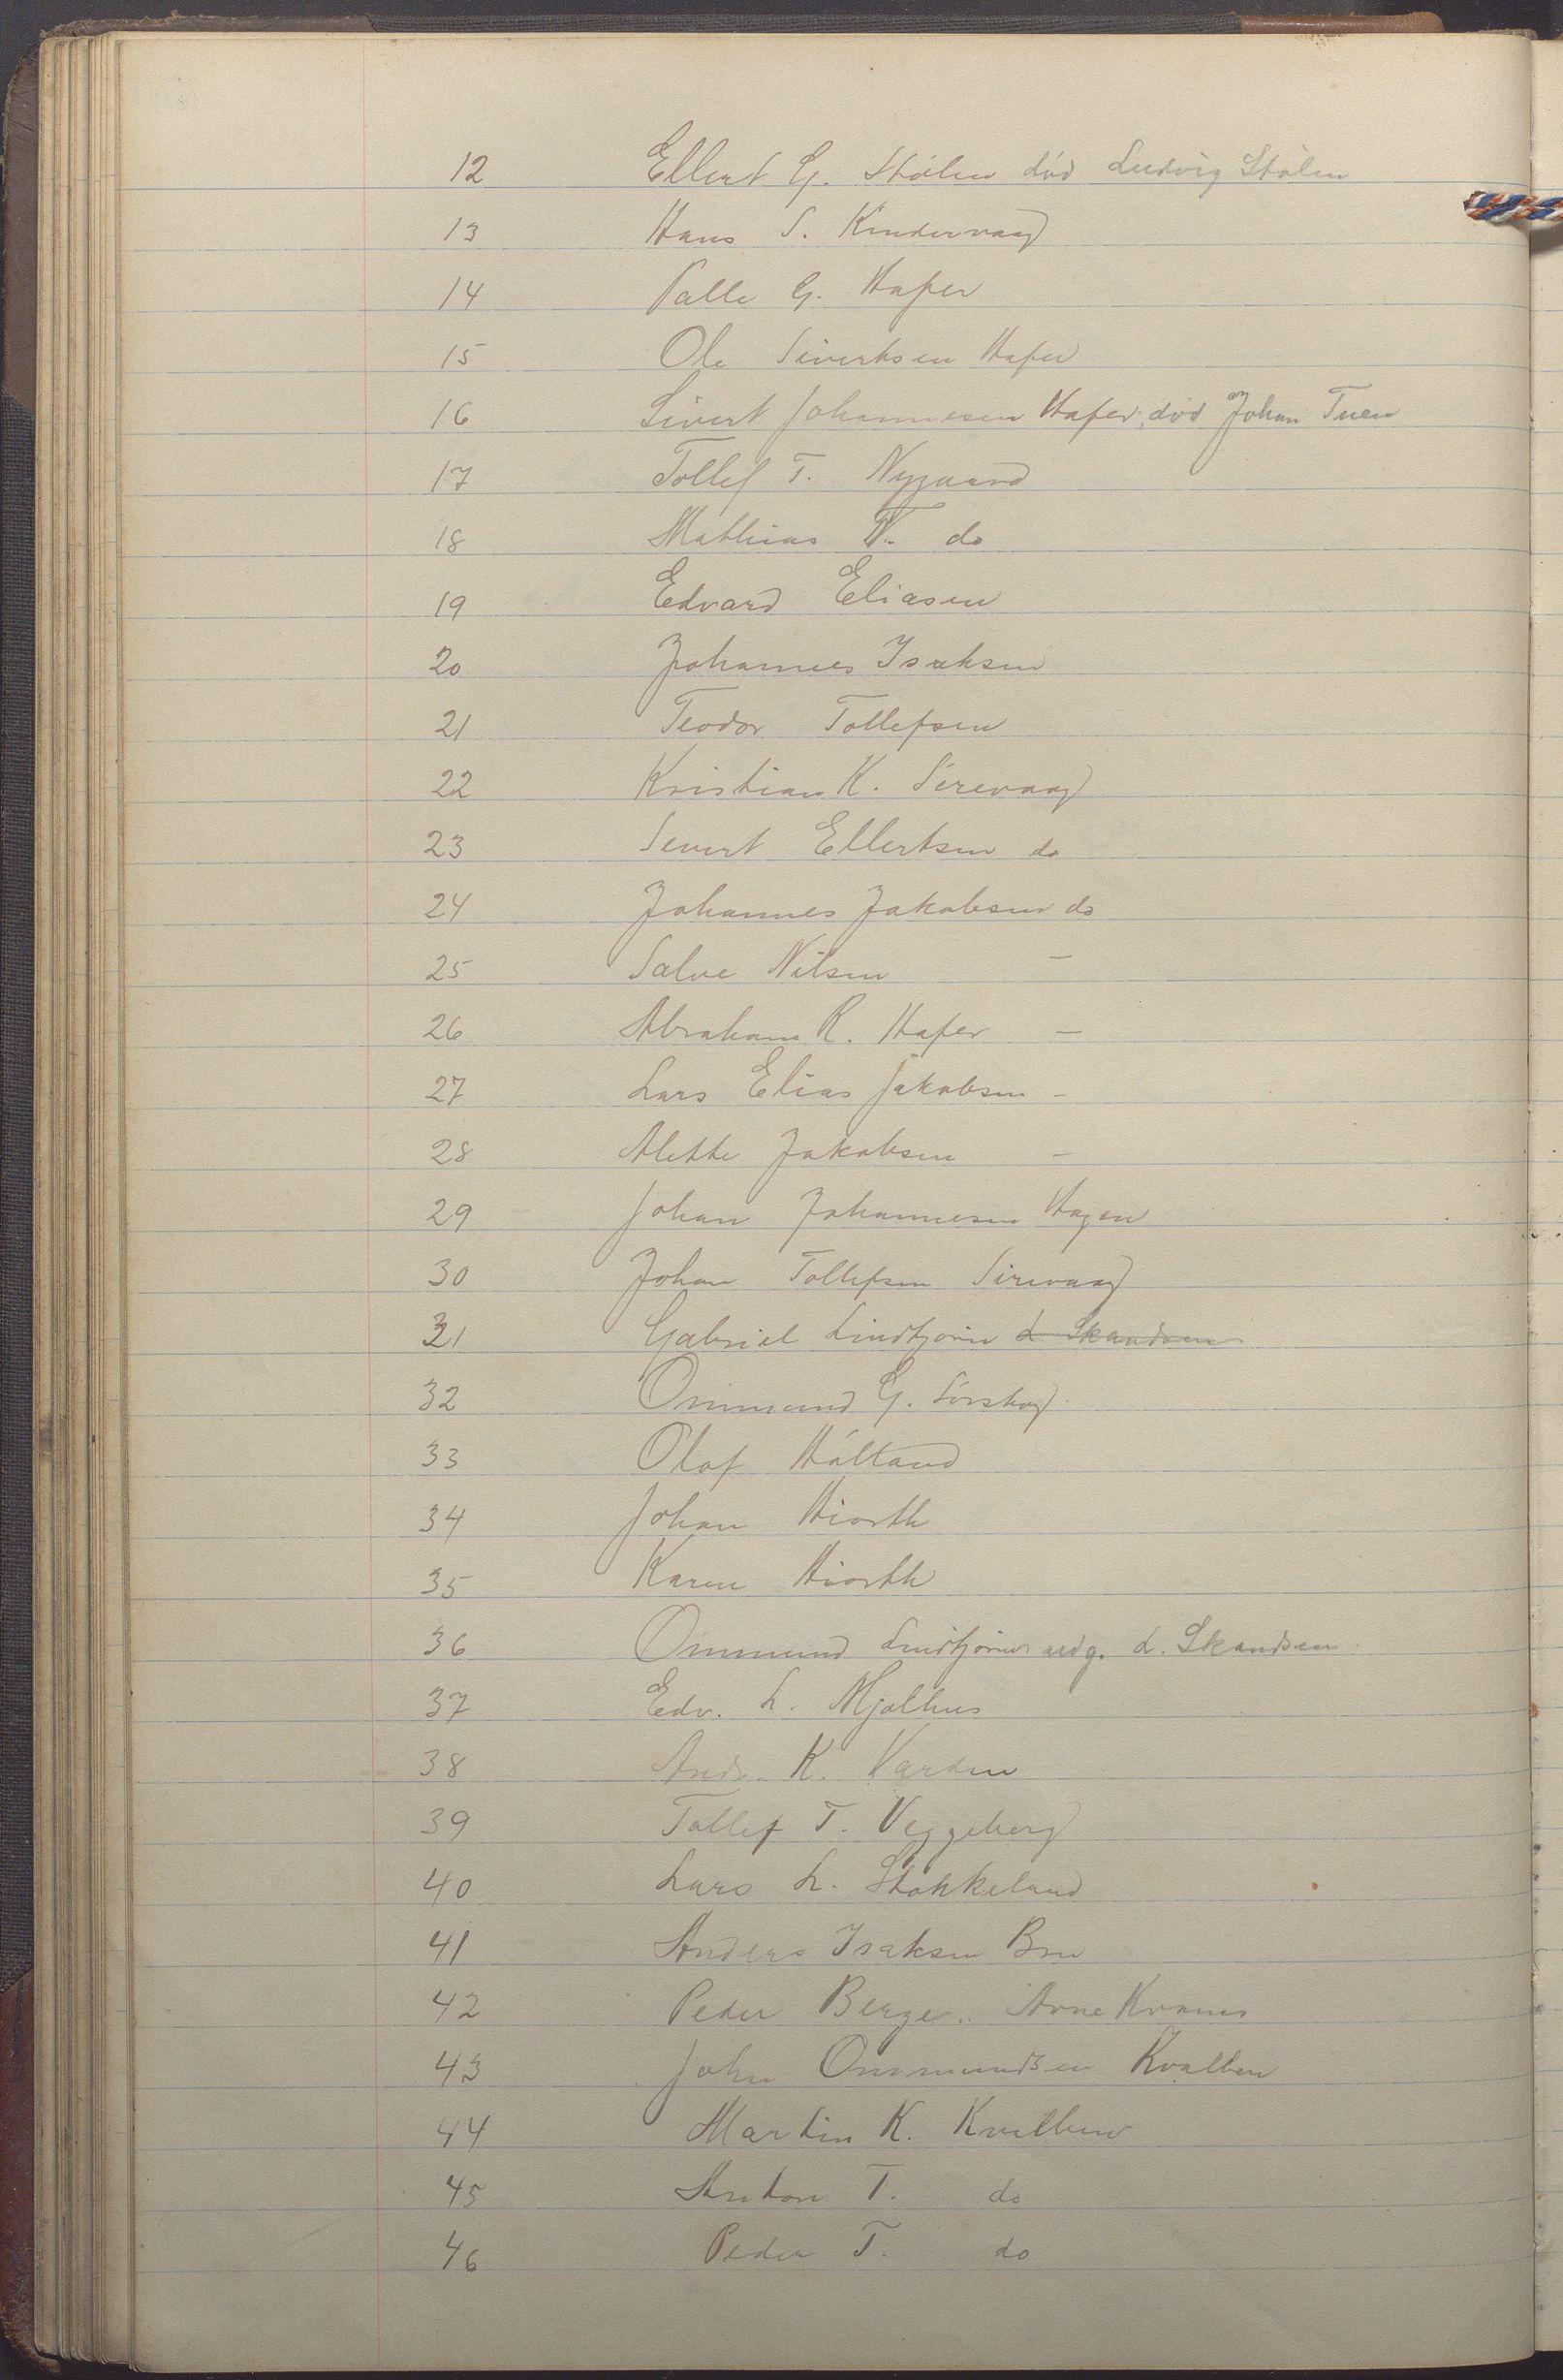 12 Ellert G. Stålen død Ludvig Stålen
13 Hans S. Kindervaag
14 Palle G. Hafsø
15 Ole Sivertsen Hafsø
16 Sivert Johannesen Hafsø, død Johan Tuen
17 Tollef T. Nygaard
18 Mathias T. do
19 Edvard Eliasen
20 Johannes Isaksen
21 Teodor Tollefsen
22 Kristian K. Sirevaag
23 Sivert Ellertsen do
24 Johannes Jakobsen do
25 Salve Nilsen –
26 Abraham R. Hafsø –
27 Lars Elias Jakobsen –
28 Alette Jakobsen –
29 Johan Johannesen Hagen
30 Johan Tollefsen Sirevaag
31 Gabriel Lindtjørn L Skandsen
32 Ommund G. Sirskog
33 Olaf Håland
34 Johan Hiorth
35 Karen Hiorth
36 Ommund Lindtjørn L. Skandsen
37 Edv. L. Mjølhus
38 Andr. K. Varden
39 Tollef T. Veggeberg
40 Lars L. Stokkeland
41 Anders Isaksen Bru
42 Peder Berge. Arne
43 John Ommundsen Kvalben
44 Martin K. Kvalben
45 Anton T. do
46 Peder T. do